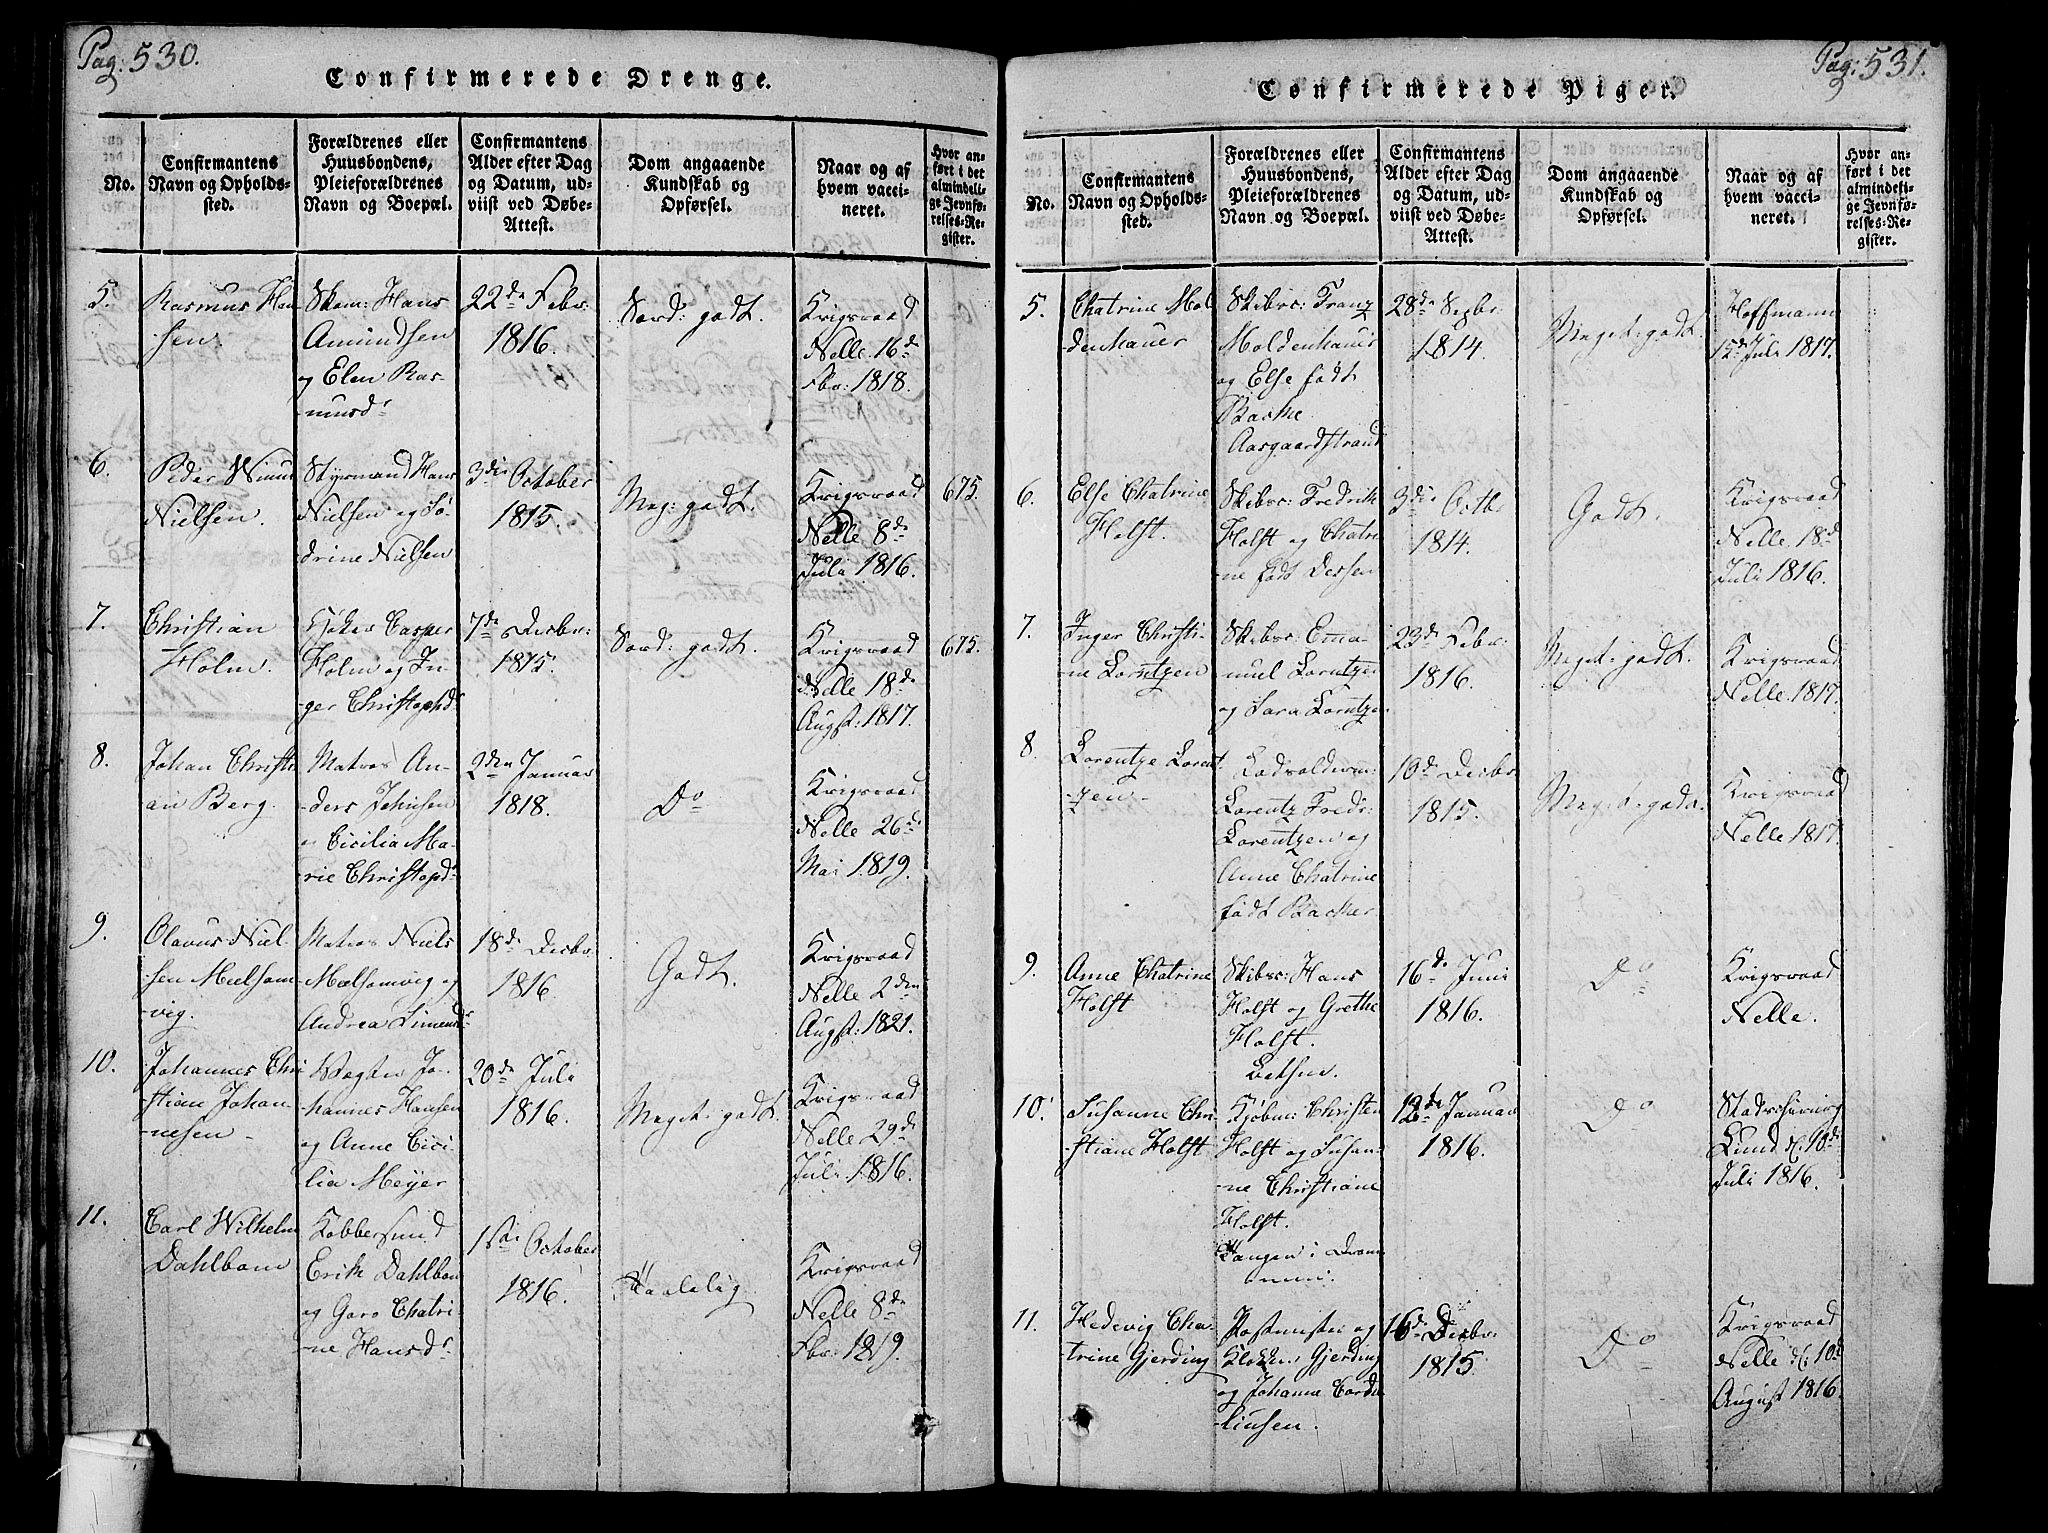 Pag: 530.
Confirmerede Drenge.
No.
Confirmantens
Navn og Opholds-
sted.
Forældrenes eller
Huusbondens,
Pleieforældrenes
Navn og Boepæl.
Confirmantens
Alder efter Dag
og Datum, ud-
viist ved Døbe-
Attest.
Dom angaaende
Kundskab og
Opførsel.
Naar og af
hvem vacci-
neret.
Hvor an-
ført i det
almindeli-
ge Jevnfø-
relses-Re-
gister.
5.
Rasmus Han
sen
Skom: Hans
Amundsen
og Elen Ras-
-musd
22de Febr:
1816.
Særd: godt.
Krigsraad
Nelle 16de
Fbr: 1818.
6.
Peder
Nielsen.
Styrmand Hans
Nielsen og Sø-
drine Nielsen
3die October
1815.
Meg: godt.
Krigsraad
Nelle 8de
Juli 1816.
675.
7.
Christian
Holm.
Casper
Holm og In-
ger Christophd
7de Decbr:
1815.
Særd: godt.
Krigsraad
Nelle 18de
Augst: 1817.
675.
8.
Johan Christi
an Berg.
Matros An-
-ders Johnsen
og Cicilia Ma-
-rie Christopd
2den Januar
1818.
Do
Krigsraad
Nelle 26de
Mai 1819.
9.
Olavus Niel-
sen Melsom-
-vig.
Matros Niels
Melsomvig og
Andrea Simends
18de Decbr.
1816.
Godt.
Krigsraad
Nelle 2den
Augst: 1821.
10.
Johannes Chri
stian Johan-
nesen
Vægter Jo-
hannes Hansen
og Anne Cici-
lia Meyer
20de Juli
1816.
Meget godt.
Krigsraad
Nelle 29de
Juli 1816.
11.
Carl Wilhelm
Dahlbom
Kobbersmed
Erik Dahlbom
og Garo Chatri-
-ne Hansd
1ste October
1816.
Maadelig
Krigsraad
Nelle 8de
Fbr: 1819.
Pag: 531.
Confirmerede Piger.
No.
Confirmantens
Navn og Opholds-
sted.
Forældrenes eller
Huusbondens,
Pleieforældrenes
Navn og Boepæl.
Confirmantens
Alder efter Dag
og Datum, ud-
viist ved Døbe-
Attest.
Dom angaaende
Kundskab og
Opførsel.
Naar og af
hvem vacci-
neret.
Hvor an-
ført i det
almindeli-
ge Jevnfø-
relses-Re-
gister.
5.
Chatrine Mol
denhauer
Skibsc: Franz
Moldenhauer
og Else født
Backe
Aasgaardstrand
28de Sepbr:
1814.
Meget godt.
Hoffmann
15de Juli 1817.
6.
Else Chatrine
Holst.
Skibsc: Fredrik
Holst og Chatri
-ne født Dessen
3die Octbr
1814.
Godt.
Krigsraad
Nelle 18de
Juli 1816.
7.
Inger Christi-
ne Lorntzen
Skibsc: Ema-
nuel Lorntzen
og Sara Lorntzen
23de Febr:
1816.
Meget godt.
Krigsraad
Nelle 1817.
8.
Lorentze Lorent-
zen
Lorentz Fredr:
Lorentzen og
Anne Chatrine
født Backer
10de Decbr.
1815.
Meget godt.
Krigsraad
Nelle 1817.
9.
Anne Chatrine
Holst
Skibsc: Hans
Holst og Grethe
Holst.
16de Juni
1816.
Do
Krigsraad
Nelle.
10.
Susanne Chri-
-stiane Holst
Kjøbm: Christen
Holst og Susan-
-ne Christiane
Holst.
Tangen i Dram
men.
12te Januar
1816.
Do
Lund d: 10de
Juli 1816.
11.
Hedevig Cha-
trine Gjerding
Postmester og
Klokker Gjerding
og Johanne
16de Decbr:
1815.
Do
Krigsraad
Nelle d: 10de
August 1816.